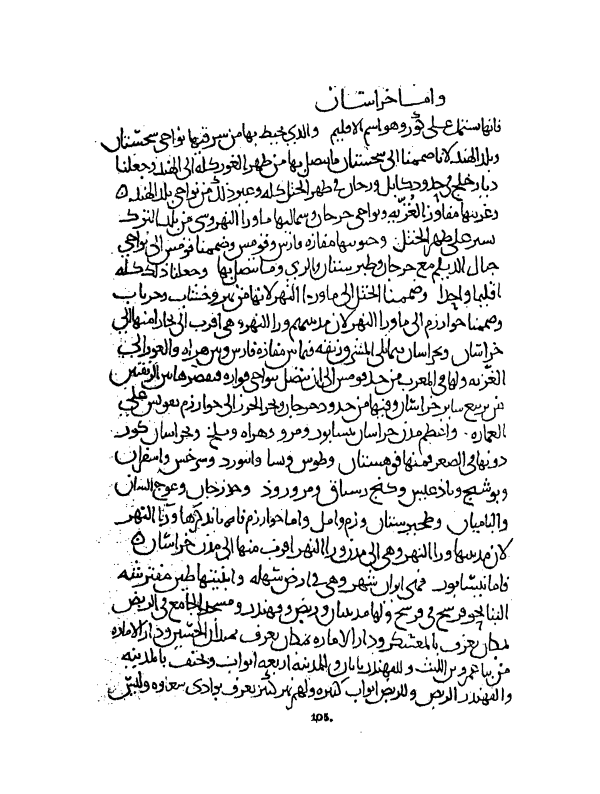 واما خراسان
فانها تشتمل على كور وهو اسم الاقليم والذي يحيط بها من شرقيها نواحي سجستان
وبلد الهند لانا ضممنا الى سجستان ما يتصل بها من ظهر الغور كله الى الهند وجعلنا
ديار خلج في حدود كابل ووخان في ظهر الختل كله وغير ذلك من نواحي بلد الهند
وغربيها مفاوز الغزيه ونواحي جرجان وشماليها ماورا النهر وشى من بلد الترك
يسير على ظهر الختل وجنوبيها مفازه فارس وقومس وضممنا قومس الى نواحي
جبال الديلم مع جرجان وطبرستان والري وما يتصل بها وجعلنا ذلك كله
اقليما واحدا وضممنا الختل الى ماورا النهر لانها من نهر وخشاب وجرياب
وضممنا خوارزم الى ماورا النهر لان مدينتهم ورا النهر وهى اقرب الى بخارا منها الى
خراسان وبخراسان فيما يلي المشرق زنقه فيما بين مفازه فارس وبين هراه والغور الى
الغزيه ولها في المغرب من حد قومس الى ان يتصل بنواحي فراوه فتقصر هاتين الزنقتين
عن تربيع ساير خراسان وفيها من حدود جرجان وبحر الخزر الى خوارزم تقويس على
العماره واعظم مدن خراسان نيسابور ومرو وهراه وبلخ وبخراسان كور
دونها في الصغر فمنها قوهستان وطوس ونسا وابيورد وسرخس واسفراين
وبوشنج وباذغيس وكنج رستاق ومرورود وجوزجان وغرج الشار
والباميان وطخيرستان وزم وامل واما خوارزم فانا نذكرها ورا النهر
لان مدينتها ورا النهر وهي الى مدن ورا النهر اقرب منها الى مدن خراسان
فاما نيسابور فهي ايران شهر وهي في ارض سهله وابنيتها طين مفترشه
البنا نحو فرسخ في فرسخ ولها مدينتان وربض وقهندز ومسجد الجامع في الربض
بمكان يعرف بالمعسكر ودار الاماره بمكان يعرف بميدان الحسين ودار الاماره
من بنا عمرو بن الليث وللقهندز بابان وللمدينه اربعه ابواب وتحتف بالمدينه
والقهندز الربض وللربض ابواب كثيره ولهم نهر كبير يعرف بوادي سغاوه
105.